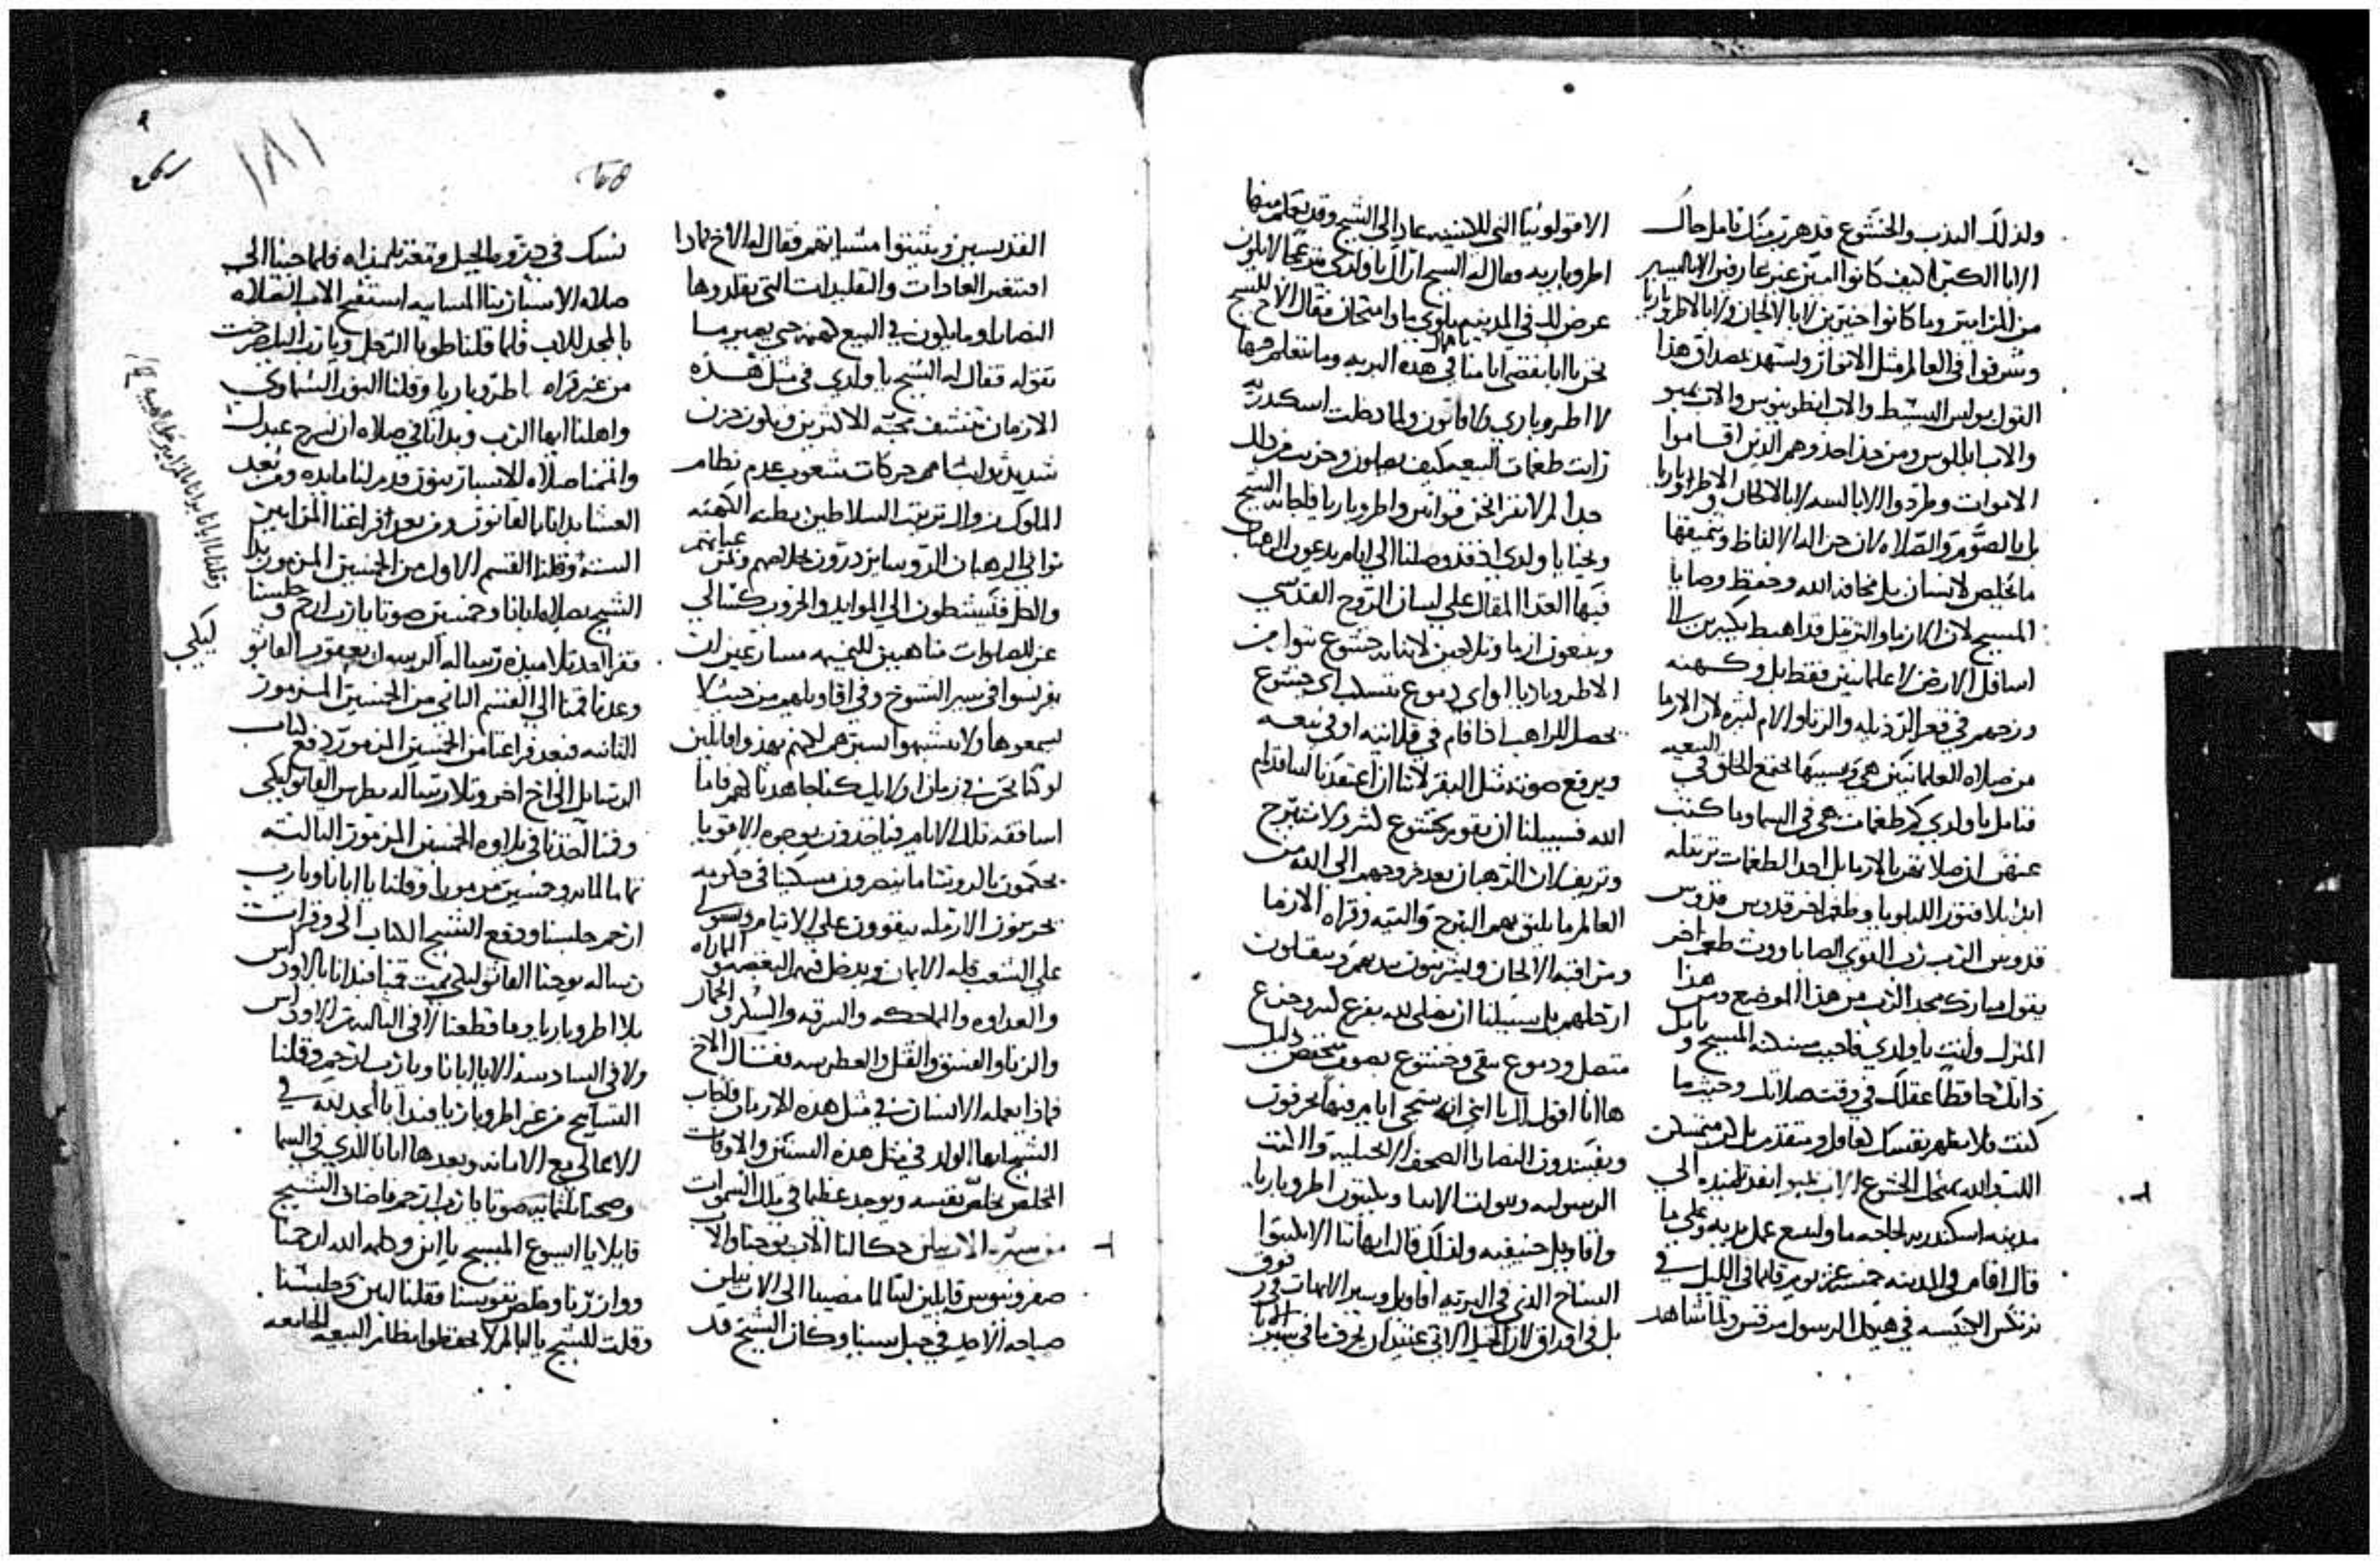 ولذلك الندب والخشوع قد هرب منك تامل حال
الابا الكبار كيف كانوا اميين غير عارفين الا باليسير
من المزامير وما كانوا خبيرين لا بالالحان ولا بالاطروباريا
وشرفوا في العالم مثل الانوار ويشهد بمصداق هذا
القول بولس البسيط والاب انطونيوس والاب بمبو
والاب ابللوس ومن حذا حذوهم الذين اقاموا
الاموات وطردوا الابالسه لا بالالحان والاطروباريا
بل بالصوم والصلاه لان حسن الالفاظ وتنميقها
ما يخلص الانسان بل مخافه الله وحفظ وصايا
المسيح لان الارما والترتيل قد اهبط كثيرين الى
اسافل الارض لا علمانيين فقط بل وكهنه
وزجهم في قعر الرذيله والزنا والام كثيره لان الارما
من صلاه العلمانيين هي وبسببها يجتمع الخلق في البيعه
فتامل يا ولدي كم طغمات هي في السما وما كتب
عنهن انهن صلا تقربا بالارما بل احد الطغمات ترتله
ابدا بلا فتور الليلويا وطغم اخر قدوس قدوس
قدوس الرب رب القوى الصاباووت طغم اخر
يقول مبارك مجد الرب من هذا الموضع ومن هذا
المنزل وانت يا ولدي فاحبب مسكنه المسيح وتامل
ذاتك حافظا عقلك في وقت صلاتك وحيثما
كنت فلا تظهر نفسك كعاقل ومتقدم بل كن متمسكن
اللب والله يمنحك الخشوع الاب بمبو انفذ تلميذه الى
مدينه اسكندريه لحاجه ما وليبيع عمل يديه وعلى ما
قال اقام في المدينه خمسه عشر يوم قايما في الليل في
نرتكس الكنيسه في هيكل الرسول مرقس ولما شاهد
الاقولوثيا التي للكنيسه عاد الى الشيخ وقد تعلم منها
اطروباريه فقال له الشيخ اراك يا ولدي منزعجا الا يكون
عرض لك في المدينه بلوى ما وامتحان فقال الاخ للشيخ
نحن يا ابا نفضي ايامنا في هذه البريه باهمال وما نتعلم فيها
لا اطروباري ولا قانون ولما دخلت اسكندريه
رايت طغمات البيعه كيف يصلون وحزنت من ذلك
جدا لم لا نقرا نحن قوانين واطروباريا فاجابه الشيخ
ويحنا يا ولدي اذ قد وصلنا الى ايام يدعون الرهبان
فيها الغذا المقال على لسان الروح القدسي
ويتبعون ارما وتلاحين لانه ايه خشوع يتوا من
الاطروباريا او اي دموع تنسكب اي خشوع
يحصل للراهب اذا قام في قلايته او في بيعه
ويرفع صوته مثل البقر لاننا ان اعتقدنا اننا قدام
الله فسبيلنا ان نقوم بخشوع كثير ولا نتبرح
ونزيف لان الرهبان بعد خروجهم الى الله من
العالم ما يليق بهم البرج والتيه وقراه الارما
ومراقبه الالحان ويشرنبون بيديهم وينقلون
ارجلهم بل سبيلنا ان نصلي لله بفزع كثير وجزع
متصل ودموع نقي وخشوع بصوت منخفض ذليل
ها انا اقول لك يا ابني انه ستجي ايام فيها يحرفون
ويفسدون النصارا الصحف الانجيليه والكتب
الرسوليه ونبوات الانبيا ويكتبون اطروباريا
واقاويل حنيفيه ولذلك قالت ابهاتنا الا تكتبوا
النساخ الذين في البريه اقاويل وسير الابهات في رقوق
بل في اوراق لان الجيل الاتي عتيد ان يحرف ما في سير الابا
القديسين ويثبتوا مشياتهم فقال له الاخ ماذا
افتتغير العادات والتقليدات التي تقلدوها
النصارا وما يكون في البيع كهنه حتى يصير ما
تقوله فقال له الشيخ يا ولدي في مثل هذه
الازمان تنشف محبه الاكثرين ويكون حزن
شديد توثبات امم حركات شعوب عدم نظام
الملوك زوال ترتيب السلاطين بطنه الكهنه
تواني الرهبان الروسا يزدرون بخلاصهم وخلاص رعياتهم
والكل فينشطون الى الموايد والحروب كسالى
عن الصلوات متاهبين للنميمه مسارعين ان
يفرسوا في سير الشيوخ وفي اقاويلهم من حيث لا
يسمعوها ولا يتشبهوا بسيرهم لكنهم يهذوا قايلين
لو كنا نحن في زمان اولايك كنا جاهدنا كهم فاما
اساقفه تلك الايام فياخذون بوجوه الاقويا
يحكمون بالرشا ما ينصرون مسكينا في حكومه
يحزنون الارمله يتقوون على الايتام ويستولي
على الشعب قله الايمان ويدخل فيهم البغضه والماراه
والعداوه والمماحكه والسرقه والسكر والخمار
والزنا والفسق والقتل والغطرسه فقال الاخ
فماذا يعمله الانسان في مثل هذه الازمان فاجاب
الشيخ ايها الولد في مثل هذه السنين والاوقات
المخلص يخلص نفسه ويوجد عظيما في ملك السموات
من سيره الاب نيلن حكا لنا الاب يوحنا والاب
صفرونيوس قايلين اننا لما مضينا الى الاب نيلن
صباحه الاحد في جبل سينا وكان الشيخ قد
نسك في ذروه الجبل ومعه تلميذاه فلما جينا الى
صلاه الاسبارينا المسايه استفتح الاب الصلاه
بالمجد للاب فلما قلنا طوبا الرجل ويا رب اليك صرخت
من غير قراه اطروباريا وقلنا النور السماوي
واهلنا ايها الرب وبدانا في صلاه ان تسرح عبدك
واتممنا صلاه للاسبارينون قدم لنا مايده ومن بعد
العشا بدانا بالقانون ومن بعد فراغنا المزامير
السته وقلنا القسم الاول من الخمسين المزمور بدا
الشيخ بصلاه ابانا وخمسين صوتا يا رب ارحم وجلسنا
فقرا احد تلاميذه رساله الرسول يعقوب القاثوليكي
وعدنا قمنا الى القسم الثاني من الخمسين المزمور
الثانيه فبعد فراغنا من الخمسين المزمور دفع كتاب
الرسايل الى اخ اخر وتلا رساله بطرس القاثوليكي
وقمنا اخذنا في تلاوه الخمسين المزمور الثالثه
تمام المايه وخمسين مزمورا وقلنا يا ابانا ويا رب
ارحم جلسنا ودفع الشيخ الكتاب الي وقرات
رساله يوحنا القاثوليكي ثم قمنا فبدانا بالاودس
بلا اطروباريا وما قطعنا لا في الثالثه من الاودس
ولا في السادسه الا يا ابانا ويا رب ارحم وقلنا
التسابيح من غير اطروباريا فبدانا المجد لله في
الاعالي مع الامانه وبعدها ابانا الذي في السما
وصحنا ثلثمايه صوتا يا رب ارحم فاضاف الشيخ
قايلا يا ايسوع المسيح يا ابن وكلمه الله ارحمنا
ووازرنا وخلص نفوسنا فقلنا امين وجلسنا
وقلت للشيخ يا ابا لم لا تحفظوا نظام البيعه الجامعه
١٨١